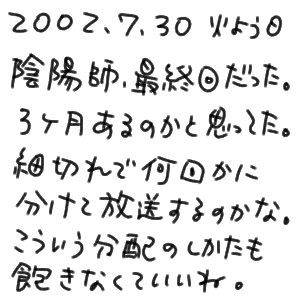 2002.7.30 火よう日
陰陽師、最終回だった。
3ヶ月あるのかと思ってた。
細切れで何回かに
分けて放送するのかな。
こういう分配のしかたも
飽きなくていいね。